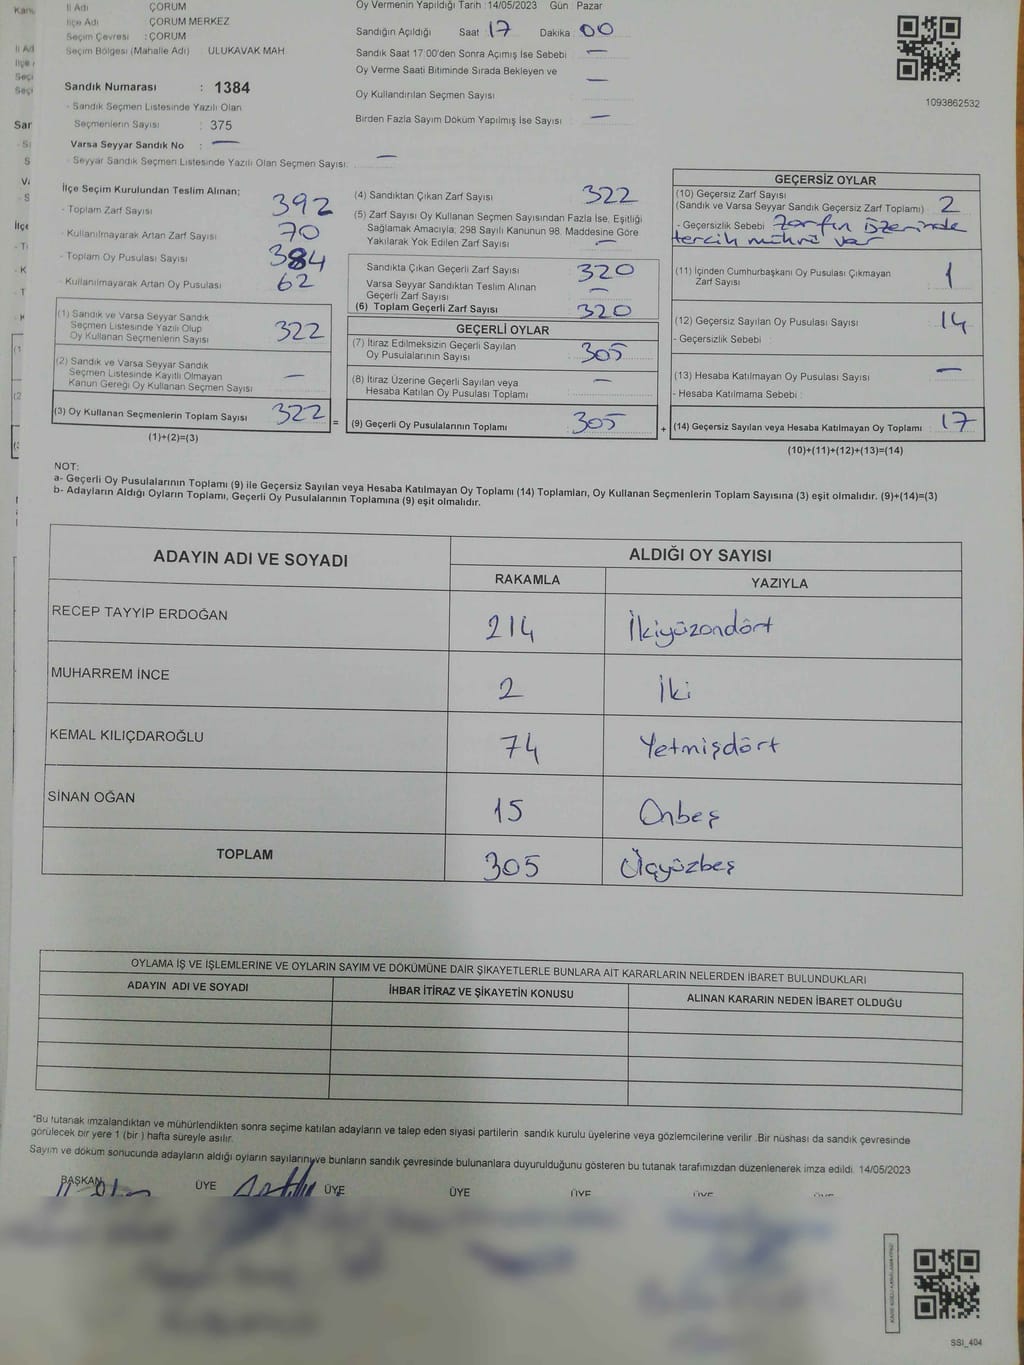 İl Adı : ÇORUM
İlçe Adı : ÇORUM MERKEZ
Seçim Çevresi : ÇORUM
Seçim Bölgesi (Mahalle Adı) ULUKAVAK MAH
Sandık Numarası : 1384
- Sandık Seçmen Listesinde Yazılı Olan
Seçmenlerin Sayısı : 375
Varsa Seyyar Sandık No : —
- Seyyar Sandık Seçmen Listesinde Yazılı Olan Seçmen Sayısı: —
Oy Vermenin Yapıldığı Tarih :14/05/2023 Gün : Pazar
Sandığın Açıldığı Saat : 17 Dakika : 00
Sandık Saat 17:00'den Sonra Açılmış İse Sebebi : —
Oy Verme Saati Bitiminde Sırada Bekleyen ve —
Oy Kullandırılan Seçmen Sayısı
Birden Fazla Sayım Döküm Yapılmış İse Sayısı : —
1093862532
İlçe Seçim Kurulundan Teslim Alınan;
- Toplam Zarf Sayısı : 392
- Kullanılmayarak Artan Zarf Sayısı : 70
- Toplam Oy Pusulası Sayısı : 384
- Kullanılmayarak Artan Oy Pusulası : 62
(1) Sandık ve Varsa Seyyar Sandık
Seçmen Listesinde Yazılı Olup
Oy Kullanan Seçmenlerin Sayısı : 322
(2) Sandık ve Varsa Seyyar Sandık
Seçmen Listesinde Kayıtlı Olmayan
Kanun Gereği Oy Kullanan Seçmen Sayısı : —
(3) Oy Kullanan Seçmenlerin Toplam Sayısı : 322
(1)+(2)=(3)
=
(4) Sandıktan Çıkan Zarf Sayısı : 322
(5) Zarf Sayısı Oy Kullanan Seçmen Sayısından Fazla İse, Eşitliği
Sağlamak Amacıyla; 298 Sayılı Kanunun 98. Maddesine Göre
Yakılarak Yok Edilen Zarf Sayısı : —
Sandıkta Çıkan Geçerli Zarf Sayısı : 320
Varsa Seyyar Sandıktan Teslim Alınan
Geçerli Zarf Sayısı : —
(6) Toplam Geçerli Zarf Sayısı : 320
GEÇERLİ OYLAR
(7) İtiraz Edilmeksizin Geçerli Sayılan
Oy Pusulalarının Sayısı : 305
(8) İtiraz Üzerine Geçerli Sayılan veya
Hesaba Katılan Oy Pusulası Toplamı : —
(9) Geçerli Oy Pusulalarının Toplamı : 305
+
GEÇERSİZ OYLAR
(10) Geçersiz Zarf Sayısı
(Sandık ve Varsa Seyyar Sandık Geçersiz Zarf Toplamı) : 2
- Geçersizlik Sebebi : Zarfın üzerinde
tercih mührü var
(11) İçinden Cumhurbaşkanı Oy Pusulası Çıkmayan
Zarf Sayısı : 1
(12) Geçersiz Sayılan Oy Pusulası Sayısı : 14
- Geçersizlik Sebebi :
(13) Hesaba Katılmayan Oy Pusulası Sayısı : —
- Hesaba Katılmama Sebebi :
(14) Geçersiz Sayılan veya Hesaba Katılmayan Oy Toplamı : 17
(10)+(11)+(12)+(13)=(14)
NOT:
a- Geçerli Oy Pusulalarının Toplamı (9) ile Geçersiz Sayılan veya Hesaba Katılmayan Oy Toplamı (14) Toplamları, Oy Kullanan Seçmenlerin Toplam Sayısına (3) eşit olmalıdır. (9)+(14)=(3)
b- Adayların Aldığı Oyların Toplamı, Geçerli Oy Pusulalarının Toplamına (9) eşit olmalıdır.
ADAYIN ADI VE SOYADI ALDIĞI OY SAYISI
RAKAMLA YAZIYLA
RECEP TAYYIP ERDOĞAN 214 İkiyüzondört
MUHARREM İNCE 2 İki
KEMAL KILIÇDAROĞLU 74 Yetmişdört
SİNAN OĞAN 15 Onbeş
TOPLAM 305 Üçyüzbeş
OYLAMA İŞ VE İŞLEMLERİNE VE OYLARIN SAYIM VE DÖKÜMÜNE DAİR ŞİKAYETLERLE BUNLARA AİT KARARLARIN NELERDEN İBARET BULUNDUKLARI
ADAYIN ADI VE SOYADI İHBAR İTİRAZ VE ŞİKAYETİN KONUSU ALINAN KARARIN NEDEN İBARET OLDUĞU
*Bu tutanak imzalandıktan ve mühürlendikten sonra seçime katılan adayların ve talep eden siyasi partilerin sandık kurulu üyelerine veya gözlemcilerine verilir. Bir nüshası da sandık çevresinde
görülecek bir yere 1 (bir ) hafta süreyle asılır.
Sayım ve döküm sonucunda adayların aldığı oyların sayılarını ve bunların sandık çevresinde bulunanlara duyurulduğunu gösteren bu tutanak tarafımızdan düzenlenerek imza edildi. 14/05/2023
BAŞKAN ÜYE ÜYE ÜYE ÜYE ÜYE ÜYE
SSI_404